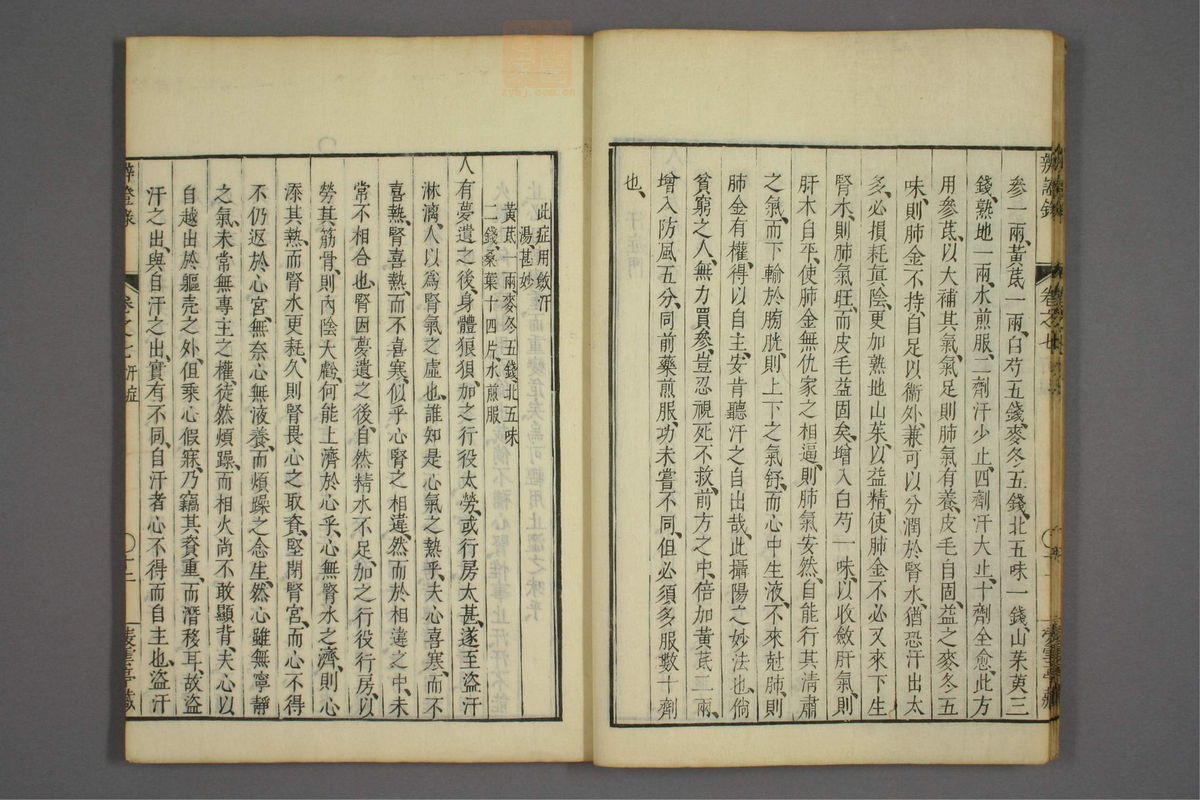 參一兩、黃芪一兩、白芍五錢、麥冬五錢、北五味一錢、山茱萸三
錢、熟地一兩、水煎服、二劑汗少止、四劑汗大止、十劑全愈、此方
用參芪、以大補其氣、氣足則肺氣有養、皮毛自固、益之麥冬五
味、則肺金不特、自足以衞外、兼可以分潤於腎水、猶恐汗出太
多、必損耗眞陰、更加熟地山茱、以益精、使肺金不必又來下生
腎水、則肺氣旺、而皮毛益固矣、增入白芍一味、以收斂肝氣、則
肝木自平、使肺金無仇家之相逼、則肺氣安然、自能行其清肅
之氣、而下輸於膀胱、則上下之氣舒、而心中生液、不來尅肺、則
肺金有權、得以自主、安肯聽汗之自出哉、此攝陽之妙法也、倘
貧窮之人、無力買參、豈忍視死不救、前方之中、倍加黃芪二兩、
增入防風五分、同前藥煎服、功未嘗不同、但必須多服數十劑
也、
此症用斂汗
湯甚妙
黃芪一兩麥冬五錢北五味
二錢、桑葉十四片、水煎服
人有夢遺之後、身體狼狽、加之行役太勞、或行房太甚、遂至盜汗
淋漓、人以爲腎氣之虛也、誰知是心氣之熱乎、夫心喜寒、而不
喜熱、腎喜熱、而不喜寒、似乎心腎之相違、然而於相違之中、未
常不相合也、腎因夢遺之後、自然精水不足、加之行役行房、以
勞其筋骨、則內陰大虧、何能上濟於心乎、心無腎水之濟、則心
添其熱、而腎水更耗、久則腎畏心之取資、堅閉腎宮、而心不得
不仍返於心宮、無奈心無液養、而煩躁之念生、然心雖無寧靜
之氣、未常無專主之權、徒然煩躁、而相火尚不敢顯背夫心以
自越出於軀壳之外、但乘心假寐、乃竊其資重、而潛移耳、故盜
汗之出、與自汗之出、實有不同、自汗者心不得而自主也、盜汗
辨證錄
卷之七 汗症